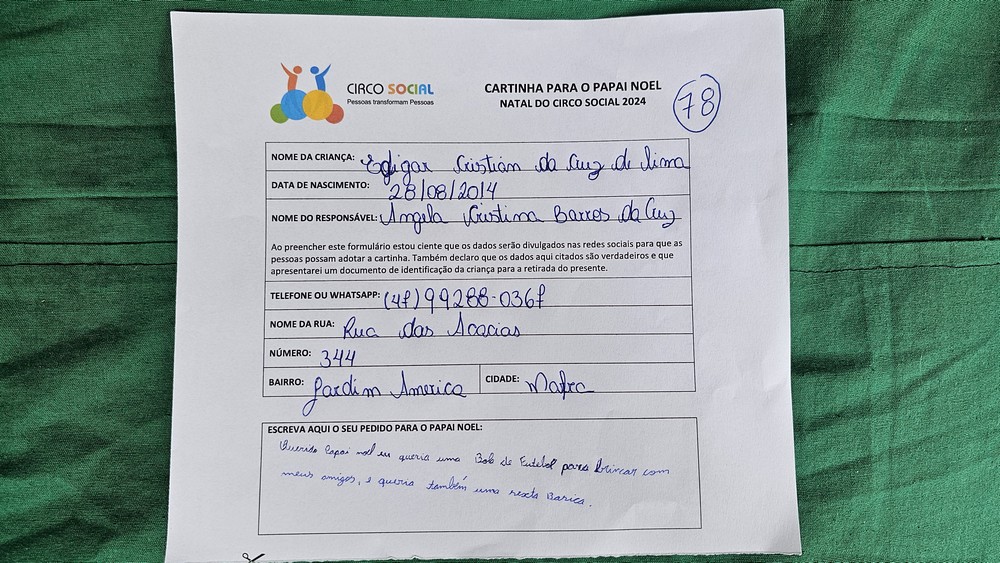 CIRCO SOCIAL
Pessoas transformam Pessoas
CARTINHA PARA O PAPAI NOEL
NATAL DO CIRCO SOCIAL 2024
78
NOME DA CRIANÇA: Edigar Cristian da Cruz de lima
DATA DE NASCIMENTO: 28/08/2014
NOME DO RESPONSÁVEL: Angela Cristina Barros da Cruz
Ao preencher este formulário estou ciente que os dados serão divulgados nas redes sociais para que as
pessoas possam adotar a cartinha. Também declaro que os dados aqui citados são verdadeiros e que
apresentarei um documento de identificação da criança para a retirada do presente.
TELEFONE OU WHATSAPP: (47) 99288-0367
NOME DA RUA: Rua das Acacias
NÚMERO: 344
BAIRRO: Jardim America CIDADE: Mafra
ESCREVA AQUI O SEU PEDIDO PARA O PAPAI NOEL:
Querido Papai noel eu queria uma Bola de Futebol para brincar com
meus amigos, e queria também uma sexta Basica.